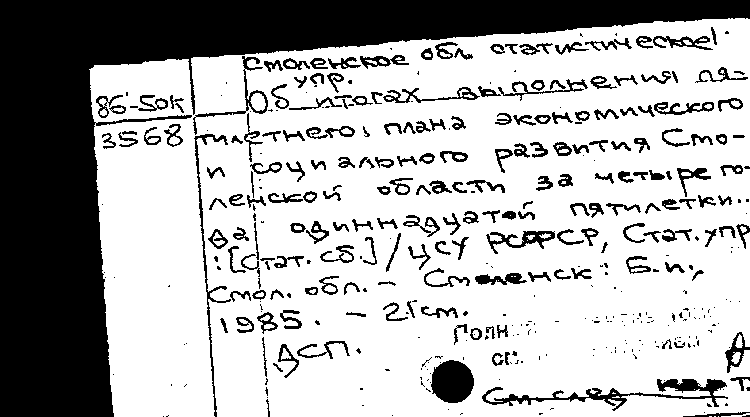 Смоленское обл. статистическое
упр.
86-50к
Об итогах выполнения пя-
3568
тилетнего плана экономического
и социального развития Смо-
ленской области за четыре го-
да одиннадцатой пятилетки...
: [Стат. сб.] / ЦСУ РСФСР, Стат. упр.
Смол. обл. – Смоленск: Б.и.,
1985. – 21см.
ДСП.
Полн
См. след карт.